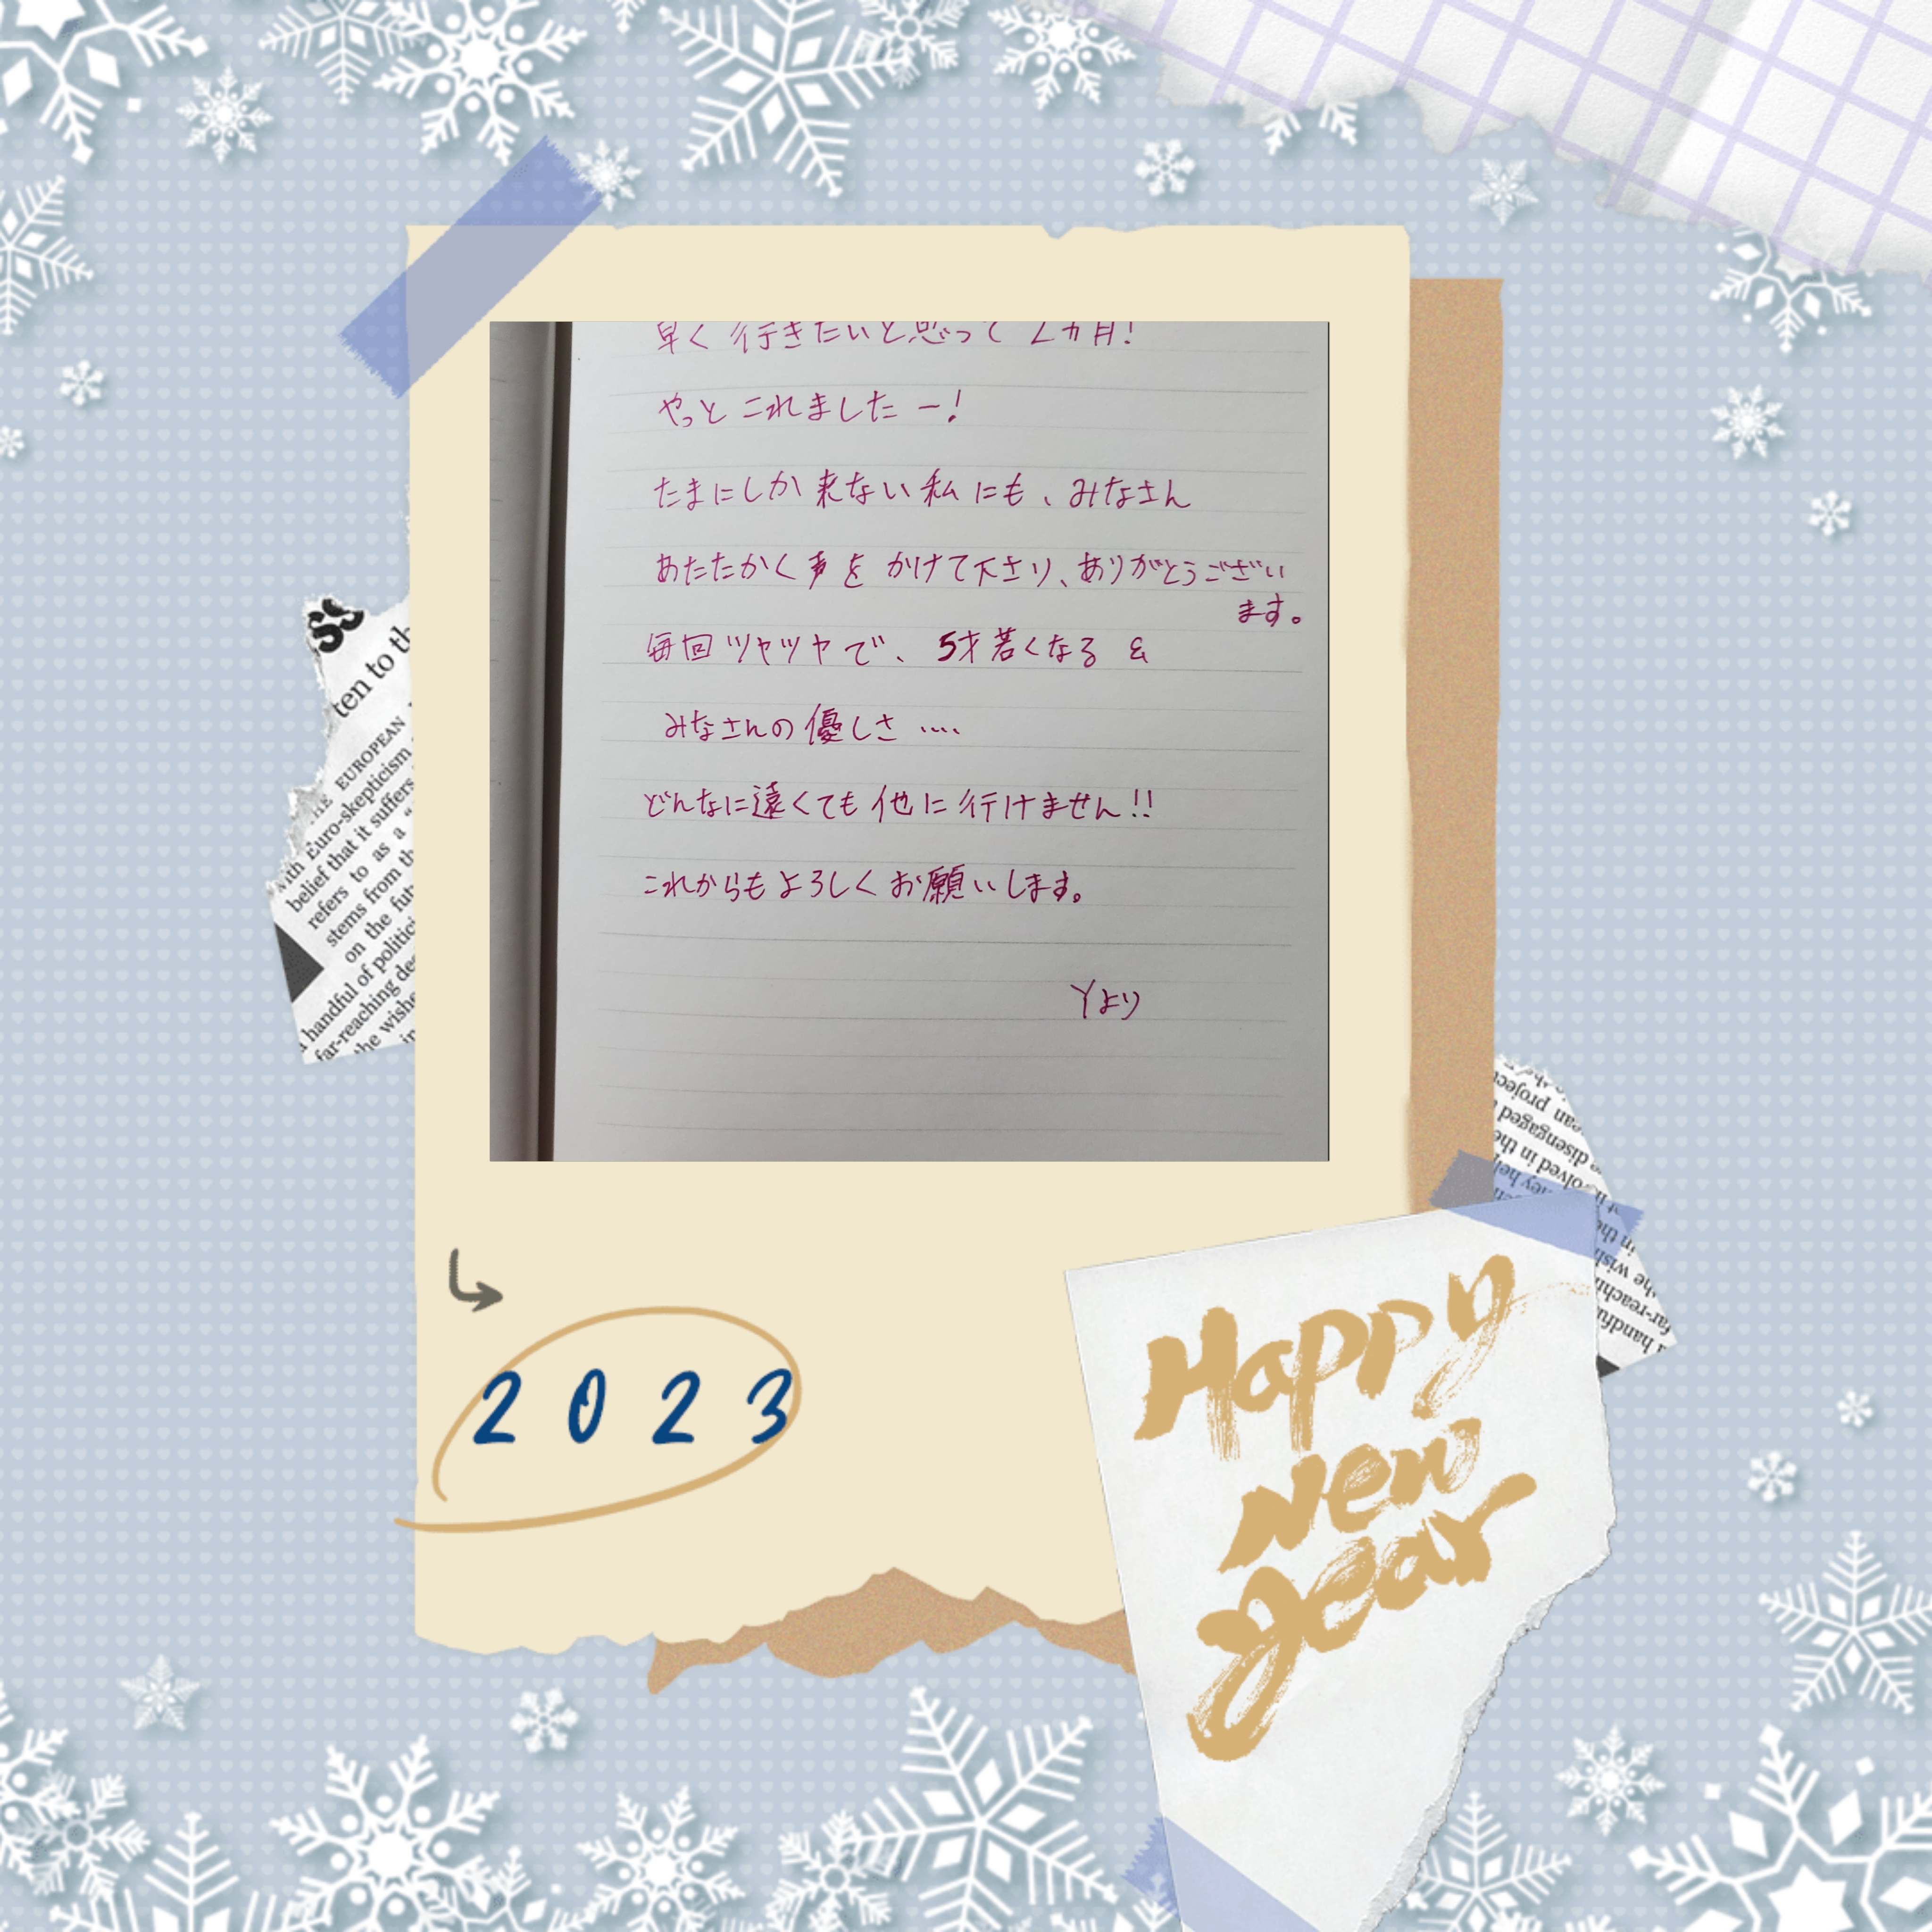 早く行きたいと思って2カ月!
やっとこれましたー!
たまにしか来ない私にも、みなさん
あたたかく声をかけて下さり、ありがとうござい
ます。
毎回ツヤツヤで、5才若くなる &
みなさんの優しさ ‥‥
どんなに遠くても他に行けません!!
これからもよろしくお願いします。
Yより
ss
ten to th
THE EUROPEAN
with Euro-skepticism
belief that it suffers
refers to as a "
stems from th
on the fut
handful of politic
far-reaching de
the wishe
in
2023
Happy
New
Year